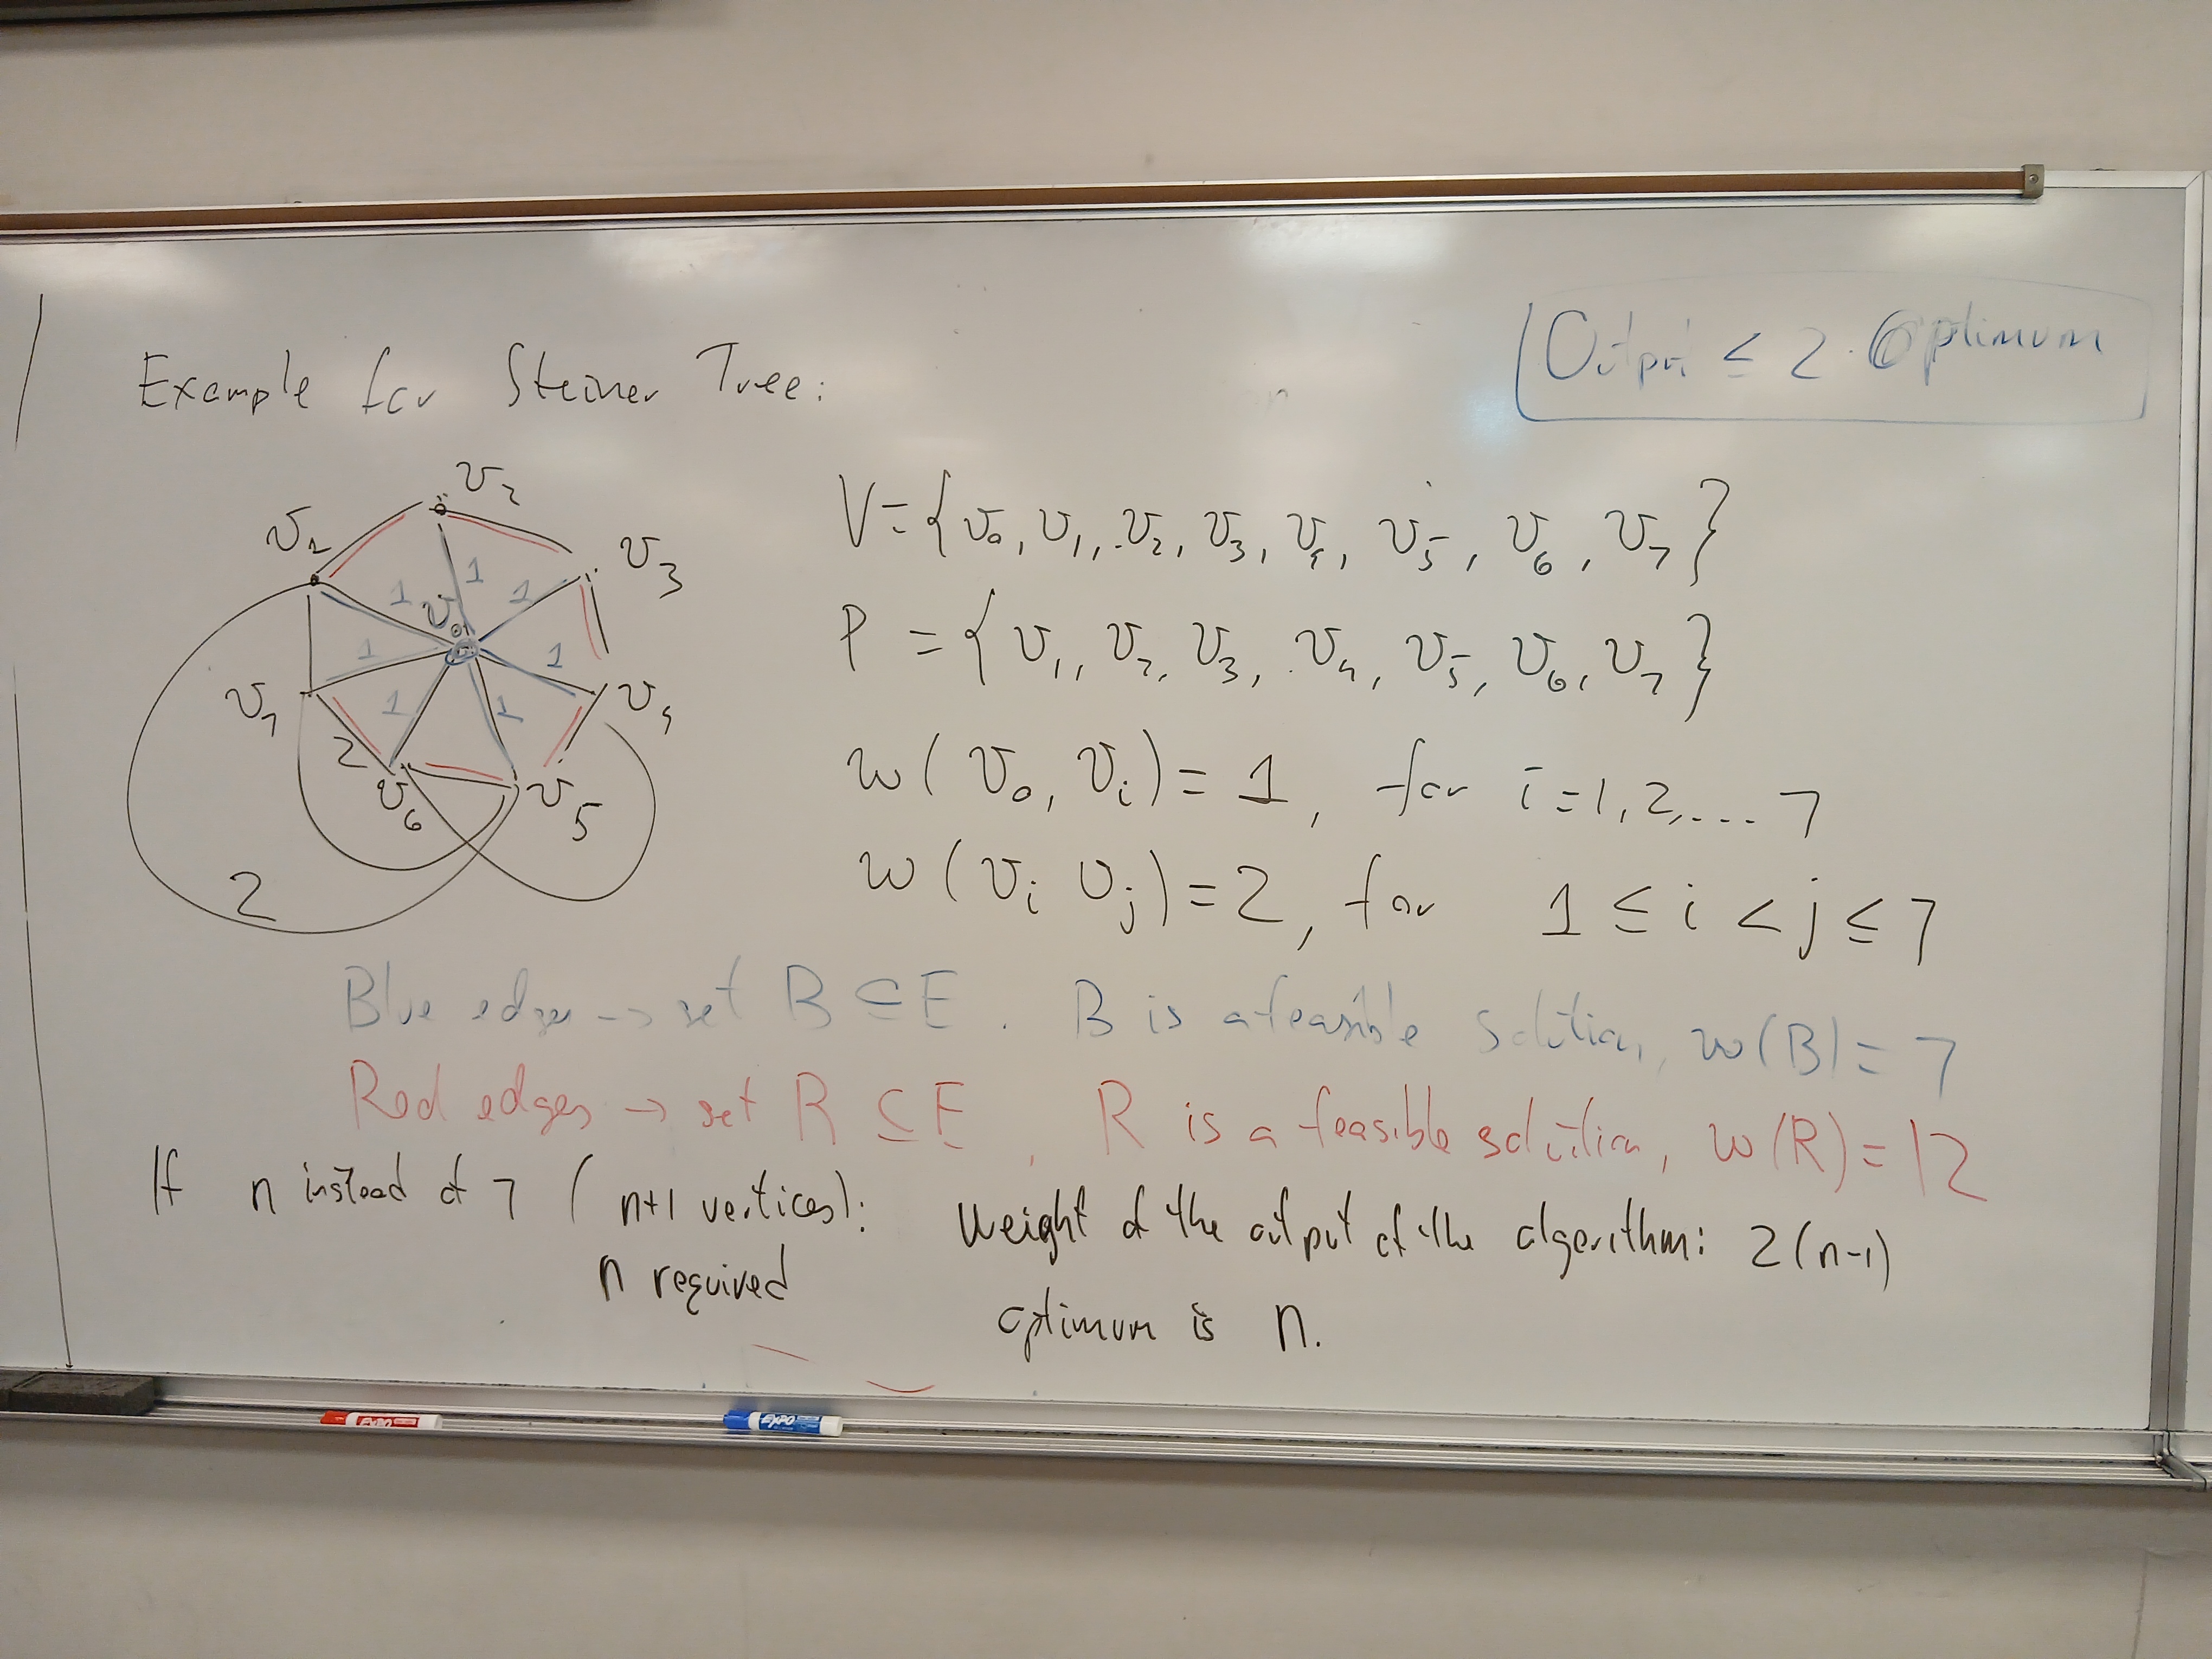 Output ≤ 2·Optimum
Example for Steiner Tree:
v₂
v₁
v₃
1 1 1
v₀
1 1
v₇
v₄
1 1
2
v₆
v₅
2
V={v₀, v₁, v₂, v₃, v₄, v₅, v₆, v₇}
P = {v₁, v₂, v₃, v₄, v₅, v₆, v₇}
w(v₀, vᵢ)=1, for i=1,2,... 7
w(vᵢ vⱼ)=2, for 1 ≤ i < j ≤ 7
Blue edges → set B ⊆ E. B is a feasible solution, w(B)=7
Red edges → set R ⊆ E, R is a feasible solution, w(R)=12
If n instead of 7 (n+1 vertices): Weight of the output of the algorithm: 2(n-1)
n required
optimum is n.
EXPO
EXPO